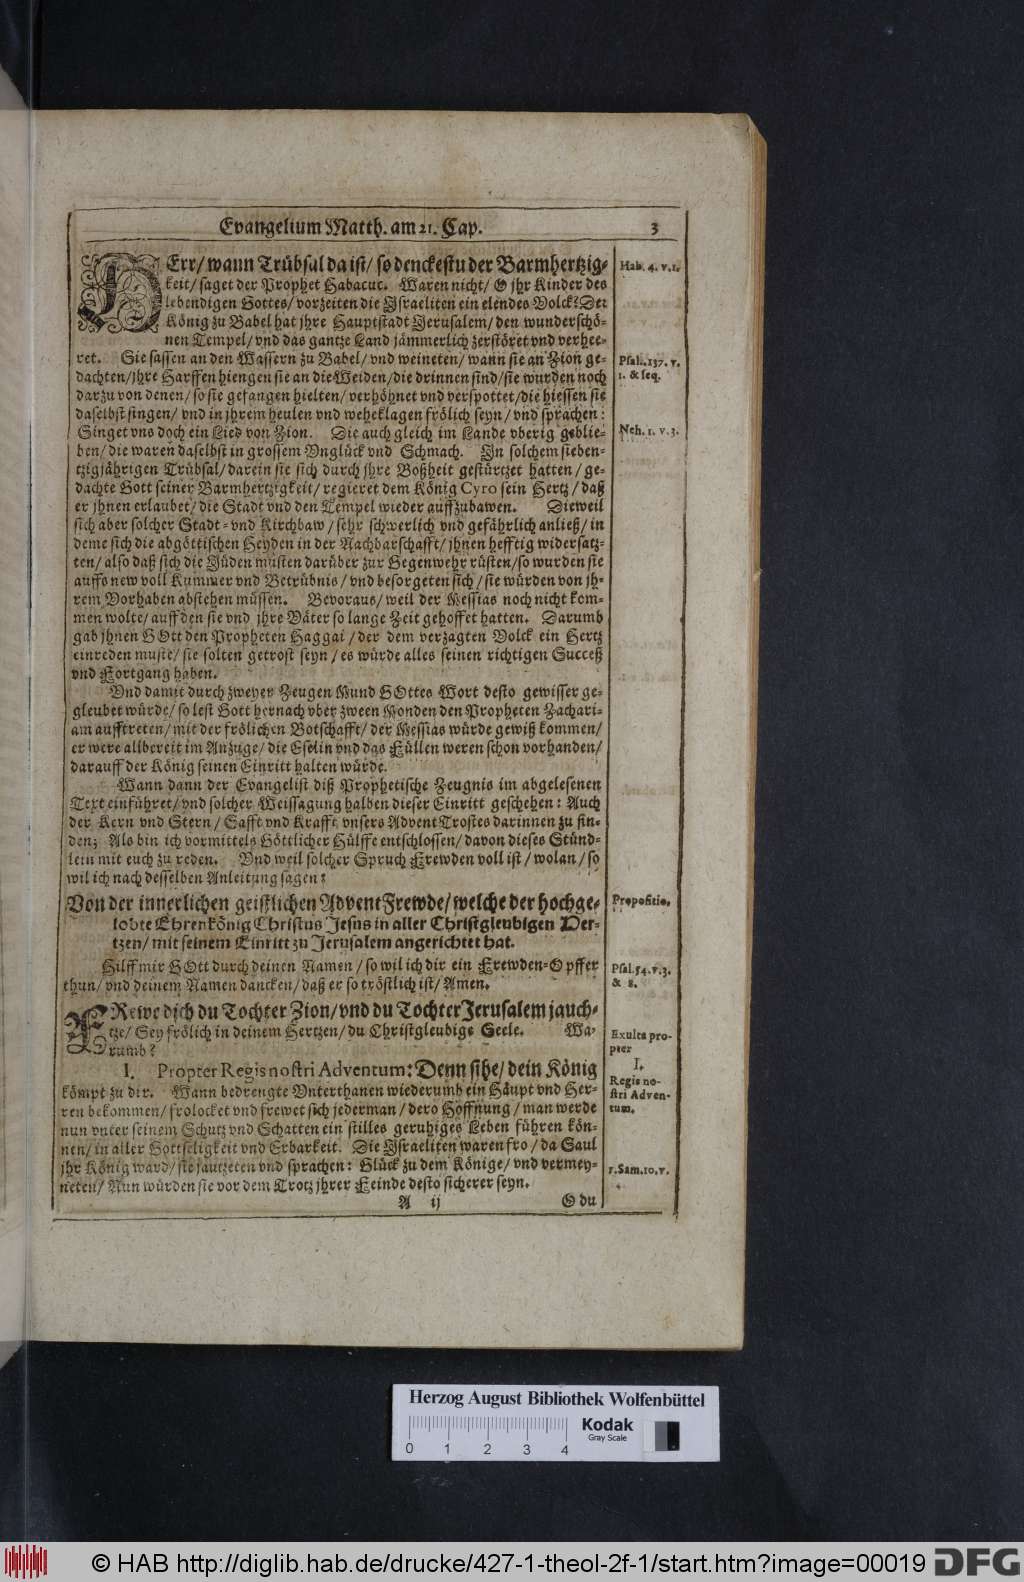 Evangelium Matth. am 21. Cap. 3
HErr/ wann Trübsal da ist/ so denckestu der Barmhertzig-
keit/ saget der Prophet Habacuc. Waren nicht/ O jhr Kinder des
lebendigen Gottes/ vorzeiten die Jsraeliten ein elendes Volck? Der
König zu Babel hat jhre Hauptstadt Jerusalem/ den wunderschö-
nen Tempel/ vnd das gantze Land jämmerlich zerstöret vnd verhee-
ret. Sie sassen an den Wassern zu Babel/ vnd weineten/ wann sie an Zion ge-
dachten/ jhre Harffen hiengen sie an die Weiden/ die drinnen sind/ sie wurden noch
darzu von denen/ so sie gefangen hielten/ verhöhnet vnd verspottet/ die hiessen sie
daselbst singen/ vnd in jhrem heulen vnd wehklagen frölich seyn/ vnd sprachen:
Singet vns doch ein Lied von Zion. Die auch gleich im Lande vberig geblie-
ben/ die waren daselbst in grossem Vnglück vnd Schmach. Jn solchem sieben-
tzigjährigen Trübsal/ darein sie sich durch jhre Boßheit gestürtzet hatten/ ge-
dachte Gott seiner Barmhertzigkeit/ regieret dem König Cyro sein Hertz/ daß
er jhnen erlaubet/ die Stadt vnd den Tempel wieder auffzubawen. Dieweil
sich aber solcher Stadt- vnd Kirchbaw/ sehr schwerlich vnd gefährlich anließ/ in
deme sich die abgöttischen Heyden in der Nachbarschafft/ jhnen hefftig widersatz-
ten/ also daß sich die Jüden müsten darüber zur Gegenwehr rüsten/ so wurden sie
auffs new voll Kummer vnd Betrübnis/ vnd besorgeten sich/ sie würden von jh-
rem Vorhaben abstehen müssen. Bevoraus/ weil der Messias noch nicht kom-
men wolte/ auff den sie vnd jhre Väter so lange Zeit gehoffet hatten. Darumb
gab jhnen GOtt den Propheten Haggai/ der dem verzagten Volck ein Hertz
einreden muste/ sie solten getrost seyn/ es würde alles seinen richtigen Succeß
vnd Fortgang haben.
Vnd damit durch zweyer Zeugen Mund GOttes Wort desto gewisser ge-
gleubet würde/ so lest Gott hernach vber zween Monden den Propheten Zachari-
am aufftreten/ mit der frölichen Botschafft/ der Messias würde gewiß kommen/
er were allbereit im Anzuge/ die Eselin vnd das Füllen weren schon vorhanden/
darauff der König seinen Einritt halten würde.
Wann dann der Evangelist diß Prophetische Zeugnis im abgelesenen
Text einführet/ vnd solcher Weissagung halben dieser Einritt geschehen: Auch
der Kern vnd Stern/ Safft vnd Krafft vnsers Advent Trostes darinnen zu fin-
den; Als bin ich vormittels Göttlicher Hülffe entschlossen/ davon dieses Stünd-
lein mit euch zu reden. Vnd weil solcher Spruch Frewden voll ist/ wolan/ so
wil ich nach desselben Anleitung sagen:
Von der innerlichen geistlichen Advent Frewde/ welche der hochge-
lobte Ehrenkönig Christus Jesus in aller Christgleubigen Her-
tzen/ mit seinem Einritt zu Jerusalem angerichtet hat.
Hilff mir GOtt durch deinen Namen/ so wil ich dir ein Frewden-Opffer
thun/ vnd deinem Namen dancken/ daß er so tröstlich ist/ Amen.
FRewe dich du Tochter Zion/ vnd du Tochter Jerusalem jauch-
tze/ Sey frölich in deinem Hertzen/ du Christgleubige Seele. Wa-
rumb?
I. Propter Regis nostri Adventum: Denn sihe/ dein König
kömpt zu dir. Wann bedrengte Vnterthanen wiederumb ein Häupt vnd Her-
ren bekommen/ frolocket vnd frewet sich jederman/ dero Hoffnung/ man werde
nun vnter seinem Schutz vnd Schatten ein stilles geruhiges Leben führen kön-
nen/ in aller Gottseligkeit vnd Erbarkeit. Die Jsraeliten waren fro/ da Saul
jhr König ward/ sie jautzeten vnd sprachen: Glück zu dem Könige/ vnd vermey-
neten/ Nun würden sie vor dem Trotz jhrer Feinde desto sicherer seyn.
A ij O du
Hab. 4. v. 1.
Psal. 137. v.
1. & seq.
Neh. 1. v. 3.
Propositio.
Psal. 54. v. 3.
& 8.
Exulta pro-
pter
I.
Regis no-
stri Adven-
tum.
1. Sam. 10. v.
Herzog August Bibliothek Wolfenbüttel
0 1 2 3 4
Kodak
Gray Scale
© HAB http://diglib.hab.de/drucke/427-1-theol-2f-1/start.htm?image=00019
DFG